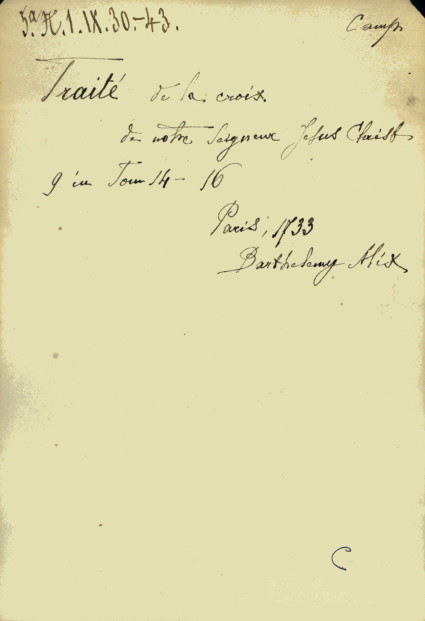 5.a H.1.IX.30.-43.
Camp
Traité de la croix
de notre Seigneur Jesus Christ
9 in Tom 14 - 16
Paris, 1733
Barthelemy Alix
C